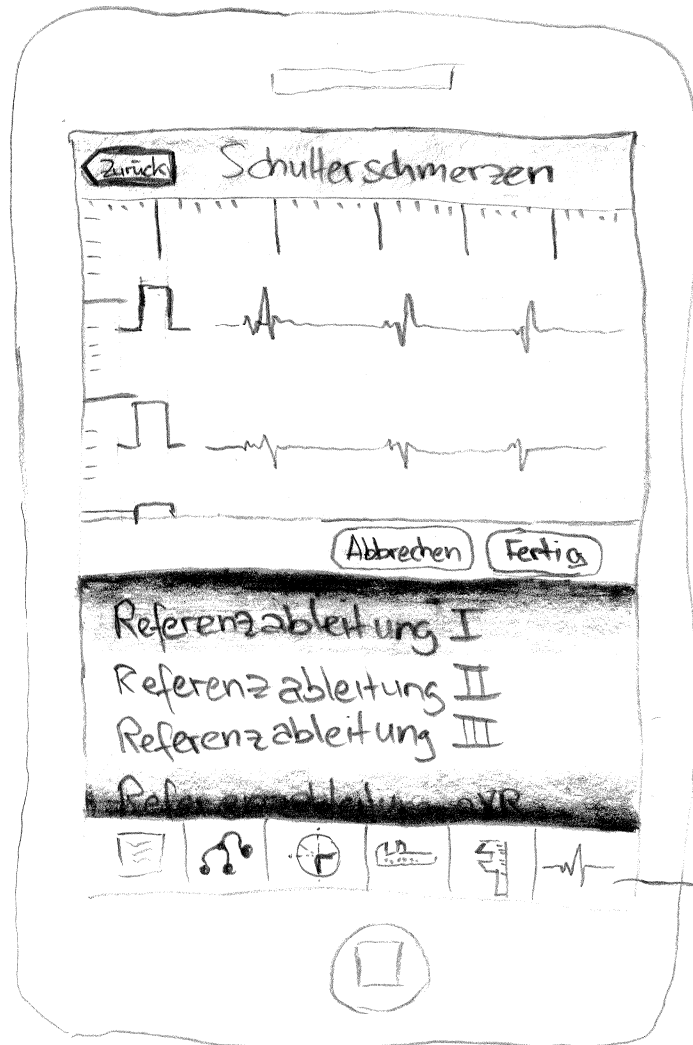 Zurück Schulterschmerzen
Abbrechen Fertig
Referenzableitung I
Referenzableitung II
Referenzableitung III
Referenzableitung aVR